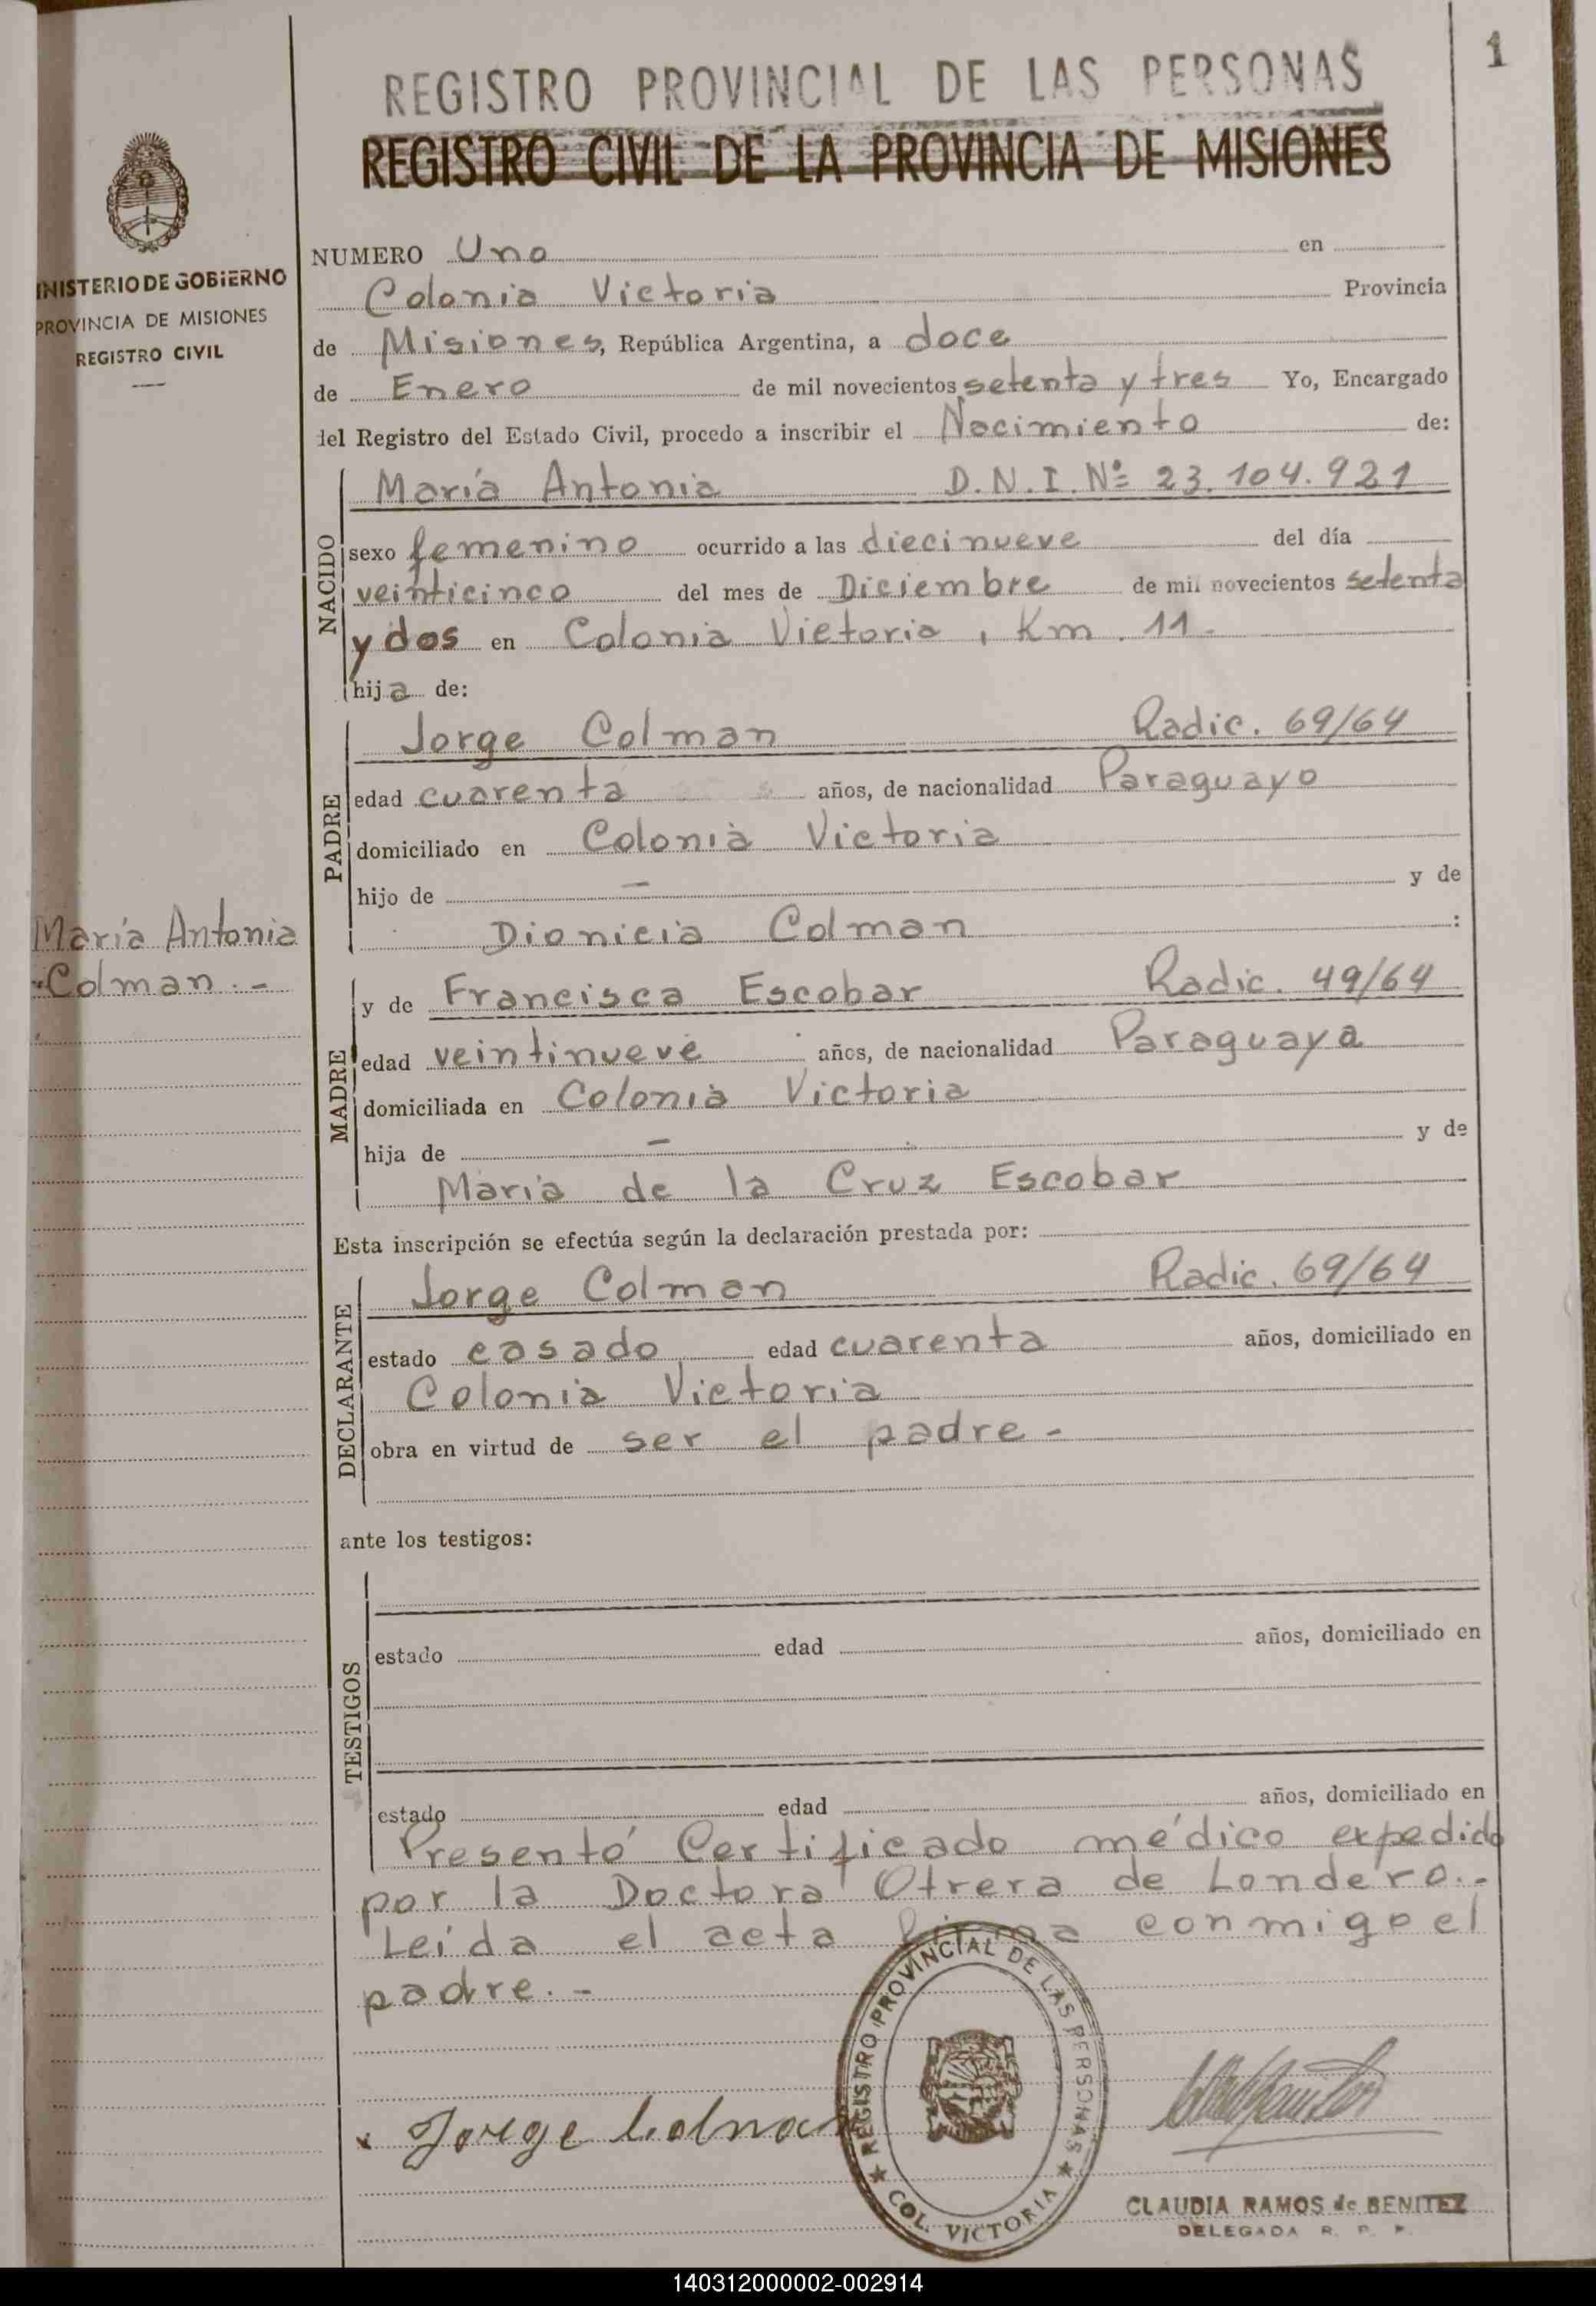 1
REGISTRO PROVINCIAL DE LAS PERSONAS
REGISTRO CIVIL DE LA PROVINCIA DE MISIONES
INISTERIO DE GOBIERNO
PROVINCIA DE MISIONES
REGISTRO CIVIL
María Antonia
Colman.-
NUMERO Uno en
Colonia Victoria Provincia
de Misiones, República Argentina, a doce
de Enero de mil novecientos setenta y tres Yo, Encargado
del Registro del Estado Civil, procedo a inscribir el Nacimiento de:
NACIDO
María Antonia D.N.I. Nº 23.104.921
sexo femenino ocurrido a las diecinueve del día
veinticinco del mes de Diciembre de mil novecientos setenta
y dos en Colonia Victoria, Km. 11.-
hija de:
PADRE
Jorge Colman Radic. 69/64
edad cuarenta años, de nacionalidad Paraguayo
domiciliado en Colonia Victoria
hijo de - y de
Dionicia Colman :
MADRE
y de Francisca Escobar Radic. 49/64
edad veintinueve años, de nacionalidad Paraguaya
domiciliada en Colonia Victoria
hija de - y de
Maria de la Cruz Escobar
Esta inscripción se efectúa según la declaración prestada por:
DECLARANTE
Jorge Colman Radic. 69/64
estado casado edad cuarenta años, domiciliado en
Colonia Victoria
obra en virtud de ser el padre-
ante los testigos:
TESTIGOS
estado edad años, domiciliado en
estado edad años, domiciliado en
Presentó Certificado médico expedido
por la Doctora Otrera de Londero.-
Leída el acta firma conmigo el
padre.-
x Jorge Colman
REGISTRO PROVINCIAL DE LAS PERSONAS
★ COL. VICTORIA ★
CLAUDIA RAMOS de BENITEZ
DELEGADA R. P. P.
140312000002-002914